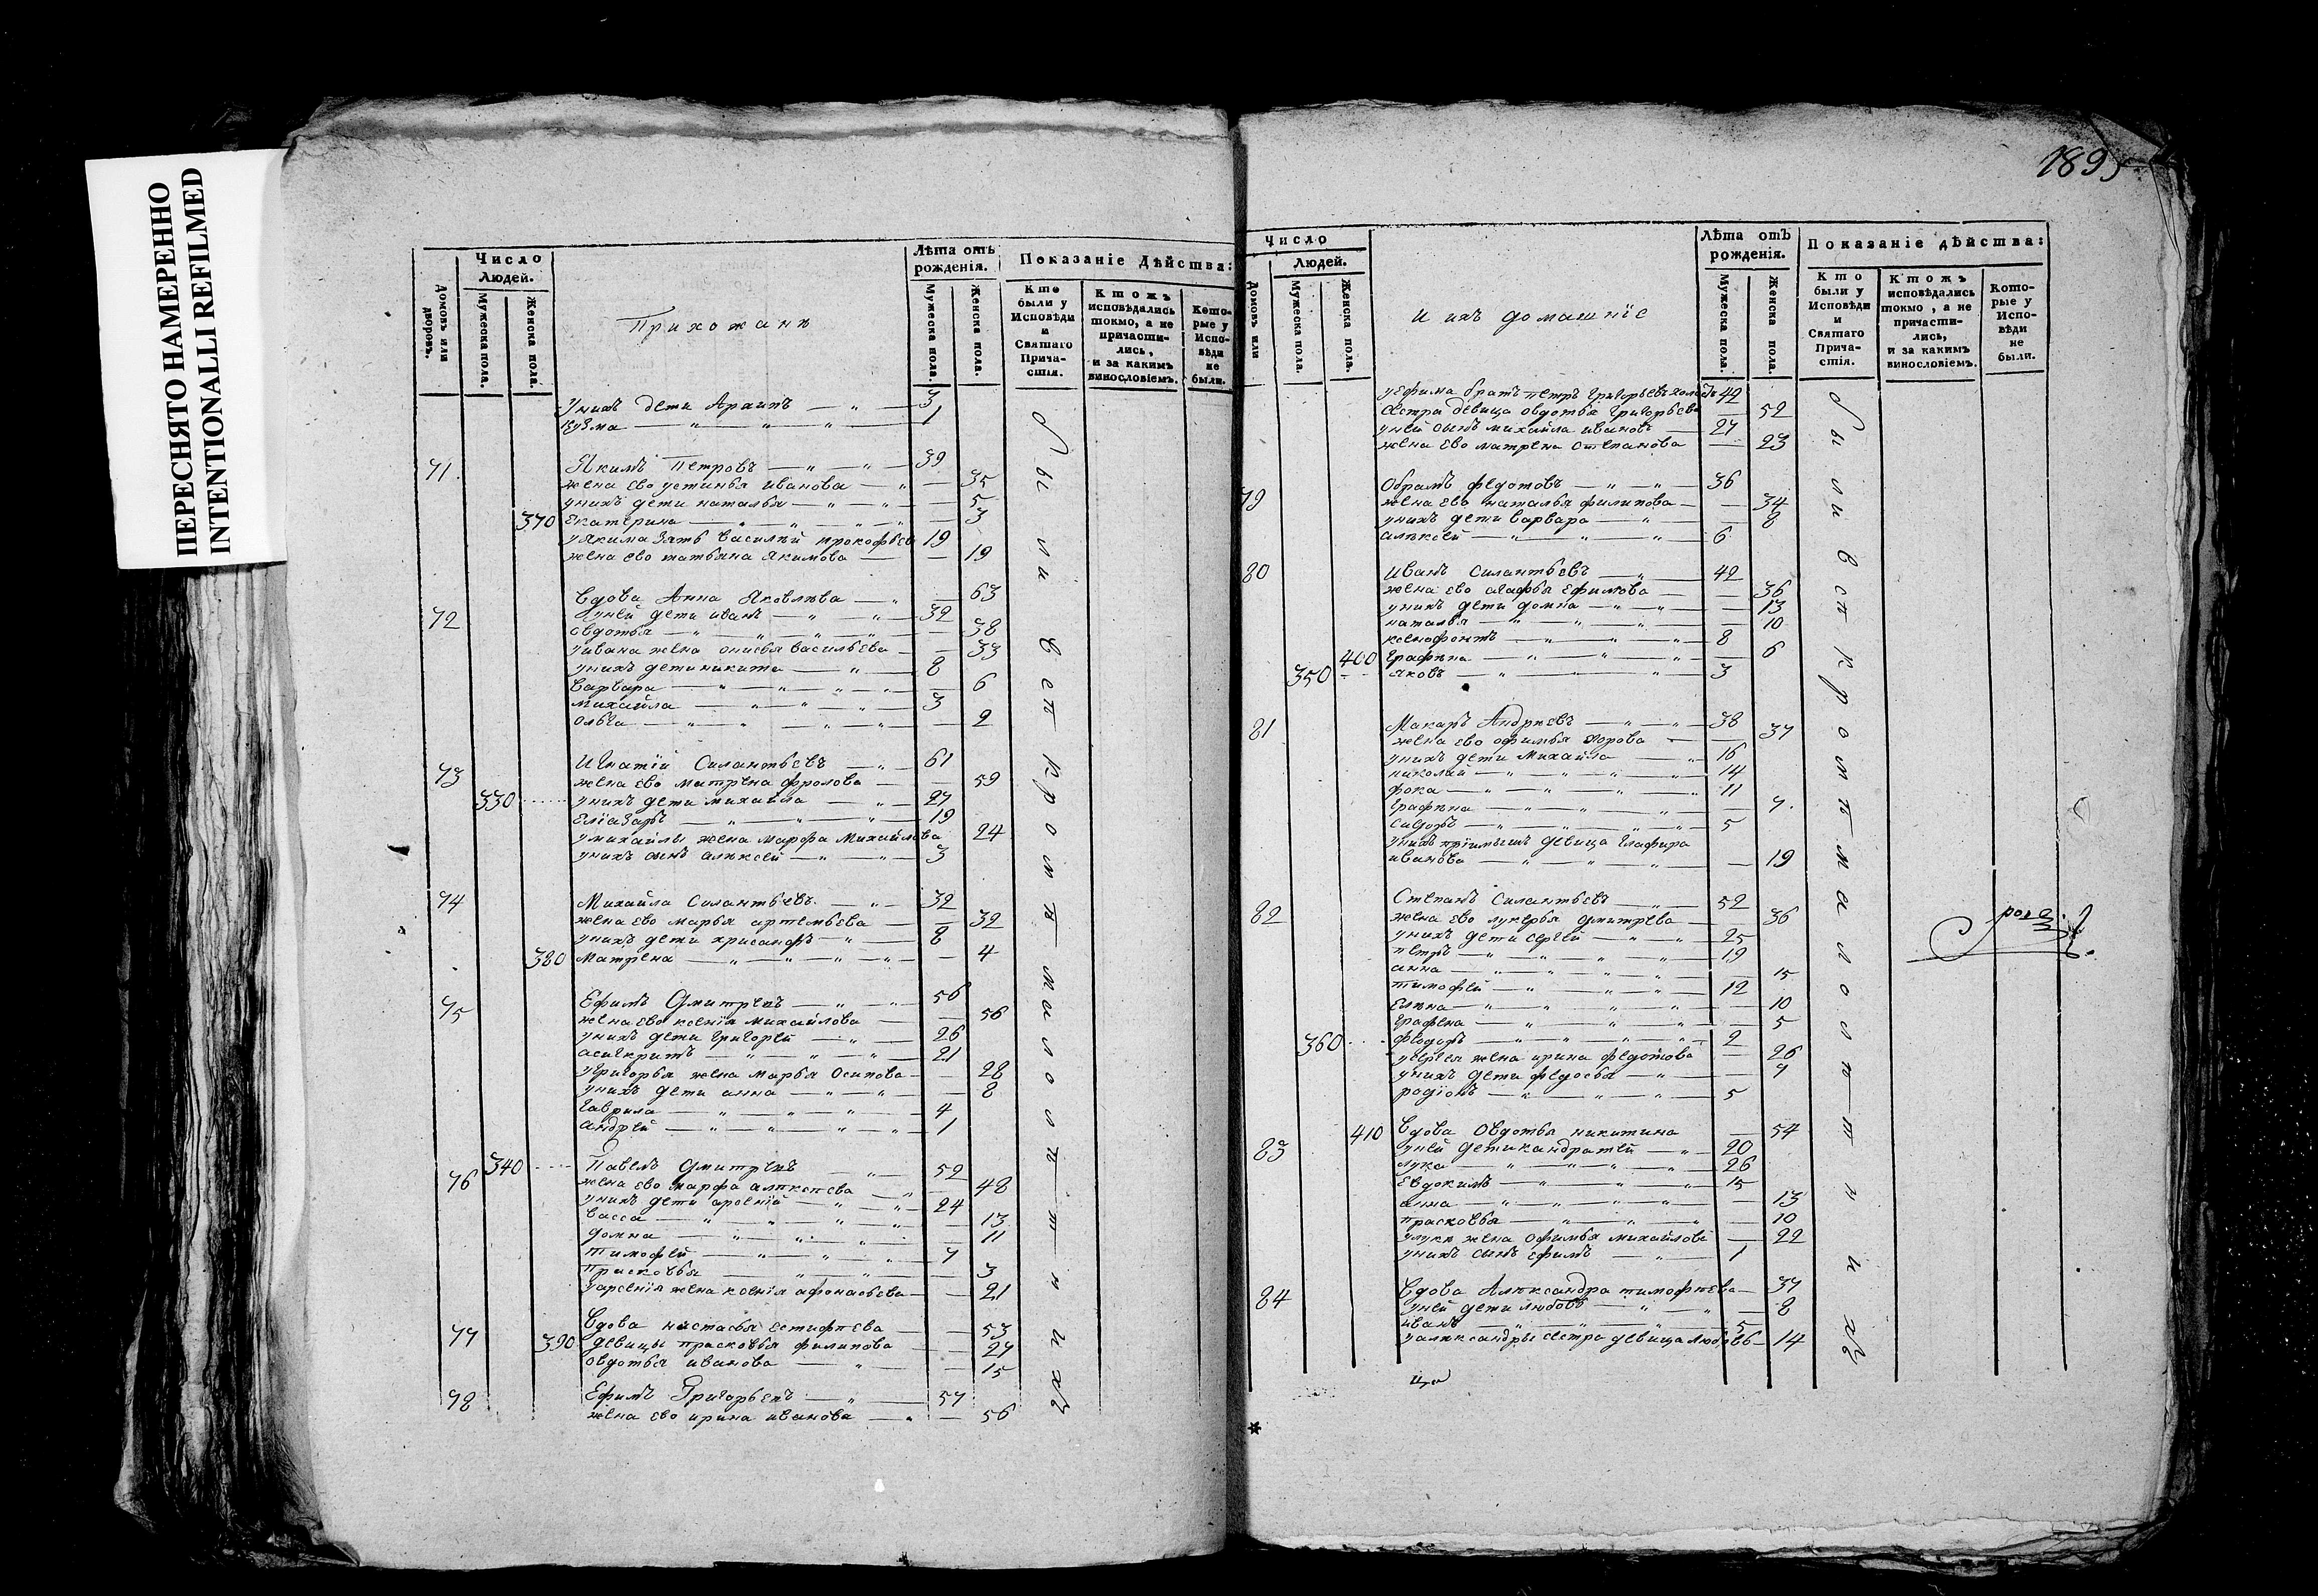 ПЕРЕСНЯТО НАМЕРЕННО
INTENTIONALLI REFILMED
Число Людей.
Домовъ или дворовъ.
Мужеска пола.
Женска пола.
Прихожанѣ
Лѣта отъ рожденія.
Мужеска пола.
Женска пола.
Показаніе Дѣйства:
Кто были у Исповѣди и Святаго Прича-стія.
Ктожъ исповѣдались токмо, а не причасти-лись, и за какимъ винословіемъ.
Кото-рые у Испо-вѣди не были.
унихъ дети Архипъ 3
кузма 1
71 Якимъ Петровъ 39
жена ево устинья иванова 35
унихъ дети наталья 5
370 Екатерина 3
уякима зять василий прокофьев 19
жена ево татьяна якимова 19
72 Вдова Анна Яковлева 63
уней дети иванъ 32
овдотья 38
уивана жена онисья васильева 33
унихъ дети никита 8
варвара 6
михайла 3
ольга 2
73 Игнатій Силантьевъ 61
жена ево матрена фролова 59
330 унихъ дети михайла 27
Еліазаръ 19
умихайлы жена марфа михайлова 24
унихъ сынъ алѣксей 3
74 Михайла Силантьевъ 32
жена ево марья артемьева 32
унихъ дети хрисанфъ 8
380 матрена 4
75 Ефимъ Дмитревъ 56
жена ево ксенія михайлова 56
унихъ дети григорей 26
асигкритъ 21
угригорья жена марья осипова 28
унихъ дети анна 8
гаврила 4
андрей 1
76 340 Павелъ Дмитревъ 52
жена ево марфа алѣксѣева 48
унихъ дети арсеній 24
васса 13
домна 11
тимофей 7
прасковья 3
уарсенія жена ксенія афонасьева 21
77 Вдова настасья естифѣева 53
390 девицы прасковья филипова 27
овдотья иванова 15
78 Ефимъ Григорьевъ 57
жена ево ирина иванова 56
были в сп кромѣ малолѣтнихъ
1895
Число Людей.
Домовъ или
Мужеска пола.
Женска пола.
и ихъ домашніе
Лѣта отъ рожденія.
Мужеска пола.
Женска пола.
Показаніе дѣйства:
Кто были у Исповѣди и Святаго Прича-стія.
Ктожъ исповѣдались токмо, а не причасти-лись, и за какимъ винословіемъ.
Кото-рые у Испо-вѣди не были.
уефима братъ петръ григорьевъ 49
сестра девица овдотья григорьева 52
уней сынъ михайла ивановъ 27
жена ево матрена степанова 23
79 Обрамъ федотовъ 36
жена ево наталья филипова 34
унихъ дети варвара 8
алѣксей 6
80 Иванъ Силантьевъ 42
жена ево агафья ефимова 36
унихъ дети домна 13
наталья 10
ксенофонтъ 8
400 Графѣна 6
350 яковъ 3
81 Макаръ Андрѣевъ 38
жена ево офимья егорова 37
унихъ дети михайла 16
николай 14
фока 11
Графѣна 7
сидоръ 5
унихъ пріимышъ девица глафира
иванова 19
82 Степанъ Силантьевъ 52
жена ево лукерья дмитрева 36
унихъ дети сергей 25
петръ 19
анна 15
тимофей 12
Елѣна 10
Графена 5
360 федоръ 2
усергея жена ирина федотова 26
унихъ дети федосья 7
родіонъ 5
410 83 Вдова Овдотья никитина 54
уней дети кандратей 20
лука 26
Евдокимъ 15
анна 13
прасковья 10
улуки жена офимья михайлова 22
унихъ сынъ ефимъ 1
84 Вдова Алѣксандра тимофѣева 37
уней дети любовь 8
иванъ 5
уалѣксандры сестра девица любовь 14
были в сп кромѣ малолѣтнихъ
*